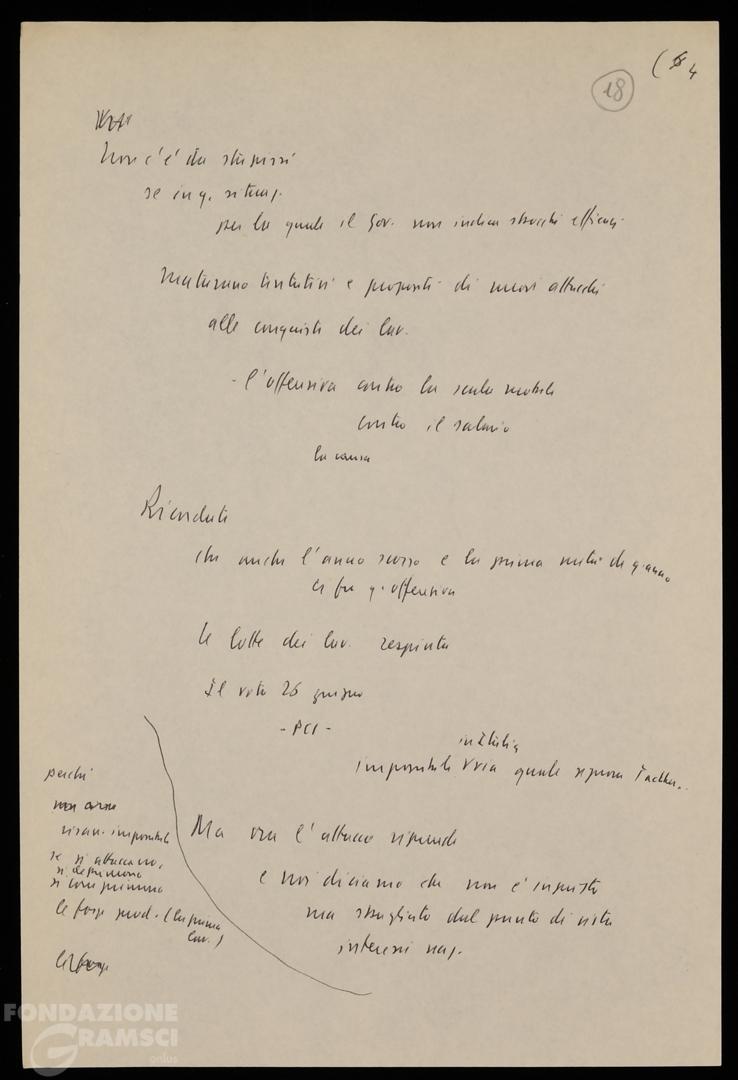 (4
18
Non c'è da stupirsi
se in q. situaz.
per la quale il Gov. non indica sbocchi efficaci
maturano tentativi e propositi di nuovi attacchi
alle conquiste dei lav.
- l'offensiva contro la scala mobile
contro il salario
la causa
Ricordate
che anche l'anno scorso e la prima metà di q. anno
ci fu q. offensiva
le lotte dei lav. respinta
Il voto 26 giugno
- PCI -
in Italia
impossibile via quale signora Tatcher..
Ma ora l'attacco riprende
e noi diciamo che non è ingiusto
ma sbagliato dal punto di vista
interessi naz.
perché
non
risan. impossibile
se si attaccano,
si deprimono
si comprimono
le forze prod. (la prima
lav.)
FONDAZIONE
GRAMSCI
onlus